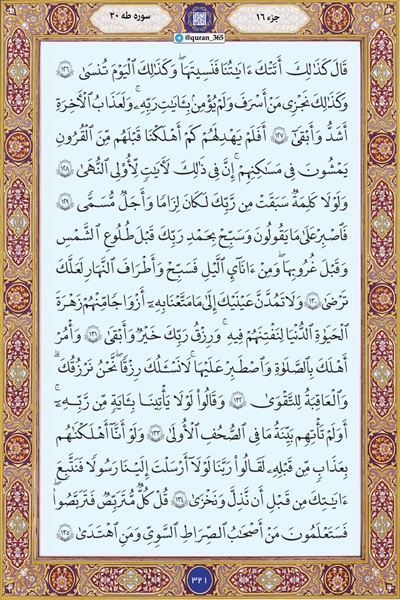 جزء ۱۶
@quran_365
سوره طه ۲۰
قَالَ كَذَٰلِكَ أَتَتْكَ ءَايَٰتُنَا فَنَسِيتَهَا ۖ وَكَذَٰلِكَ ٱلْيَوْمَ تُنسَىٰ ۝١٢٦
وَكَذَٰلِكَ نَجْزِى مَنْ أَسْرَفَ وَلَمْ يُؤْمِنۢ بِـَٔايَٰتِ رَبِّهِۦ ۚ وَلَعَذَابُ ٱلْءَاخِرَةِ
أَشَدُّ وَأَبْقَىٰٓ ۝١٢٧ أَفَلَمْ يَهْدِ لَهُمْ كَمْ أَهْلَكْنَا قَبْلَهُم مِّنَ ٱلْقُرُونِ
يَمْشُونَ فِى مَسَٰكِنِهِمْ ۗ إِنَّ فِى ذَٰلِكَ لَءَايَٰتٍ لِّأُو۟لِى ٱلنُّهَىٰ ۝١٢٨
وَلَوْلَا كَلِمَةٌ سَبَقَتْ مِن رَّبِّكَ لَكَانَ لِزَامًا وَأَجَلٌ مُّسَمًّى ۝١٢٩
فَٱصْبِرْ عَلَىٰ مَا يَقُولُونَ وَسَبِّحْ بِحَمْدِ رَبِّكَ قَبْلَ طُلُوعِ ٱلشَّمْسِ
وَقَبْلَ غُرُوبِهَا ۖ وَمِنْ ءَانَآئِ ٱلَّيْلِ فَسَبِّحْ وَأَطْرَافَ ٱلنَّهَارِ لَعَلَّكَ
تَرْضَىٰ ۝١٣٠ وَلَا تَمُدَّنَّ عَيْنَيْكَ إِلَىٰ مَا مَتَّعْنَا بِهِۦٓ أَزْوَٰجًا مِّنْهُمْ زَهْرَةَ
ٱلْحَيَوٰةِ ٱلدُّنْيَا لِنَفْتِنَهُمْ فِيهِ ۚ وَرِزْقُ رَبِّكَ خَيْرٌ وَأَبْقَىٰ ۝١٣١ وَأْمُرْ
أَهْلَكَ بِٱلصَّلَوٰةِ وَٱصْطَبِرْ عَلَيْهَا ۖ لَا نَسْـَٔلُكَ رِزْقًا ۖ نَّحْنُ نَرْزُقُكَ ۗ
وَٱلْعَٰقِبَةُ لِلتَّقْوَىٰ ۝١٣٢ وَقَالُوا۟ لَوْلَا يَأْتِينَا بِـَٔايَةٍ مِّن رَّبِّهِۦٓ ۚ
أَوَلَمْ تَأْتِهِم بَيِّنَةُ مَا فِى ٱلصُّحُفِ ٱلْأُولَىٰ ۝١٣٣ وَلَوْ أَنَّآ أَهْلَكْنَٰهُم
بِعَذَابٍ مِّن قَبْلِهِۦ لَقَالُوا۟ رَبَّنَا لَوْلَآ أَرْسَلْتَ إِلَيْنَا رَسُولًا فَنَتَّبِعَ
ءَايَٰتِكَ مِن قَبْلِ أَن نَّذِلَّ وَنَخْزَىٰ ۝١٣٤ قُلْ كُلٌّ مُّتَرَبِّصٌ فَتَرَبَّصُوا۟ ۖ
فَسَتَعْلَمُونَ مَنْ أَصْحَٰبُ ٱلصِّرَٰطِ ٱلسَّوِىِّ وَمَنِ ٱهْتَدَىٰ ۝١٣٥
۳۲۱